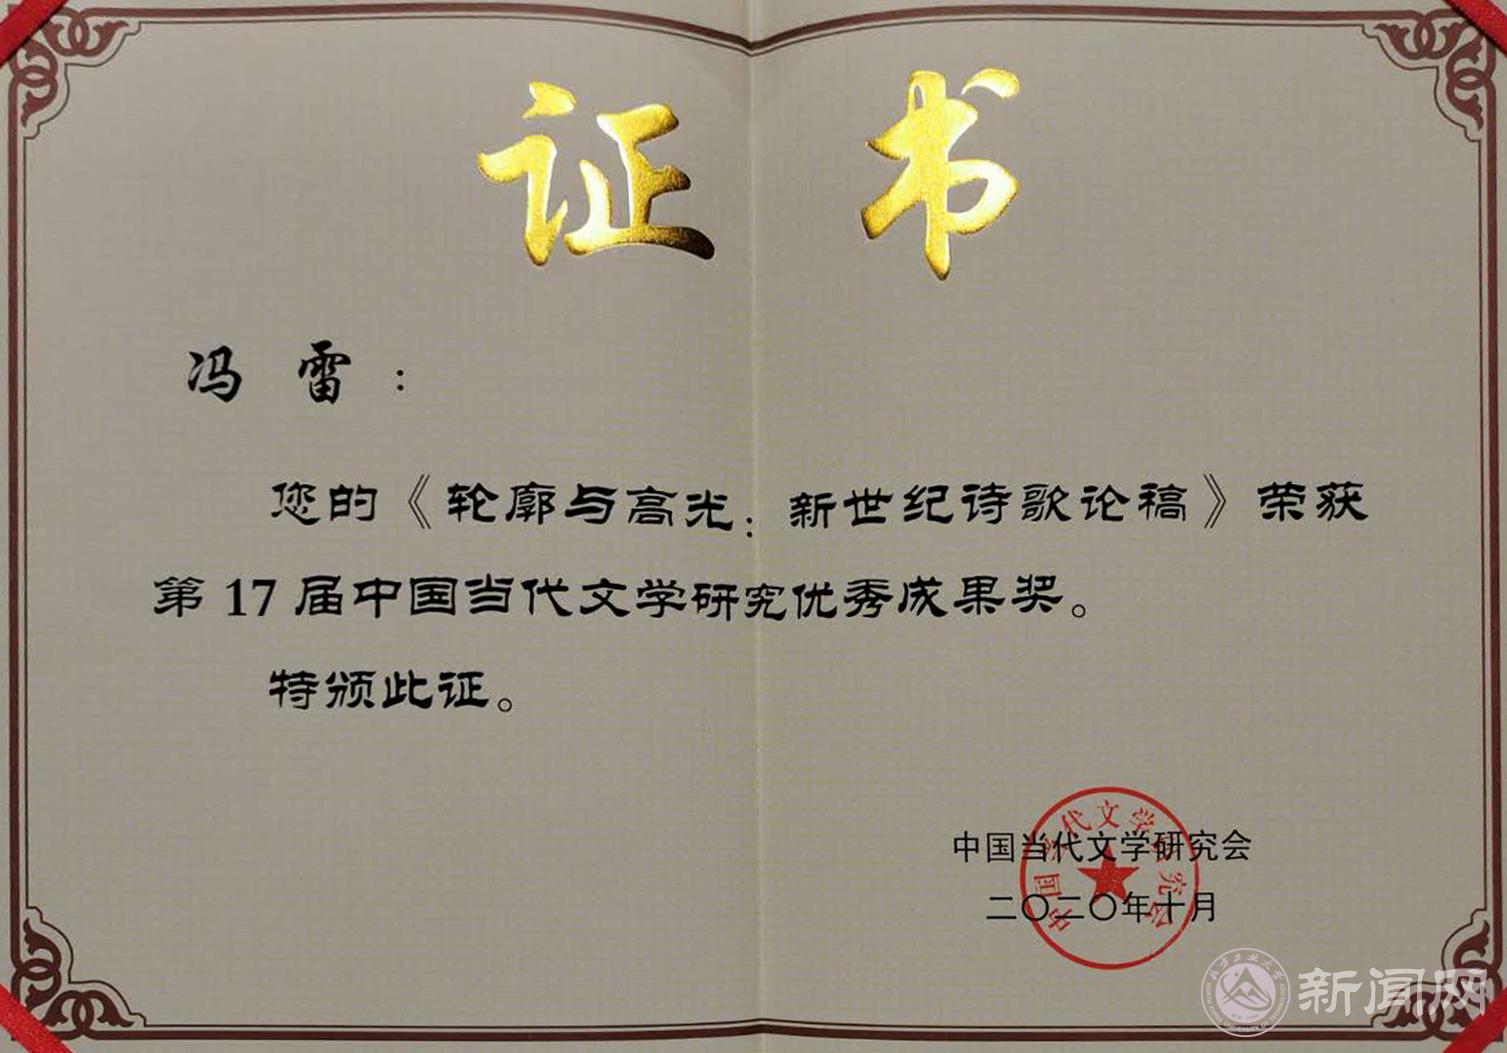 证书
冯雷：
您的《轮廓与高光：新世纪诗歌论稿》荣获
第17届中国当代文学研究优秀成果奖。
特颁此证。
中国当代文学研究会
二〇二〇年十月
中国当代文学研究会
北方工业大学
新闻网